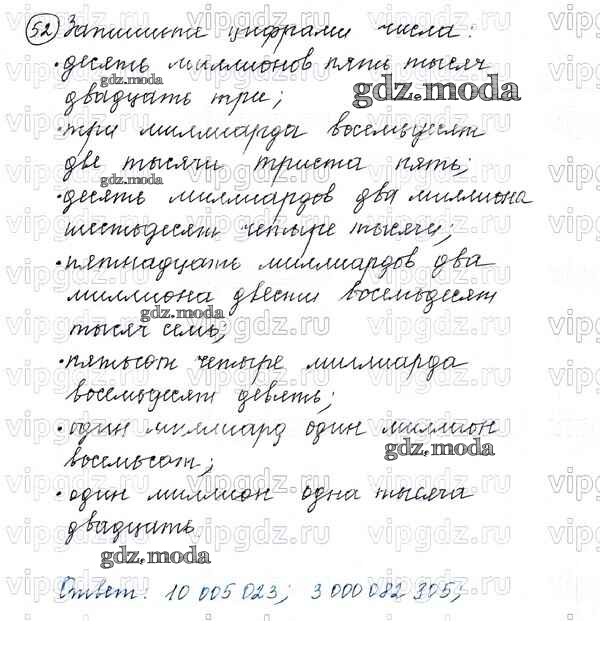 52 Запишите цифрами числа:
• десять миллионов пять тысяч
gdz.moda
двадцать три;
gdz.moda
• три миллиарда восемьдесят
две тысячи триста пять;
gdz.moda
• десять миллиардов два миллиона
шестьдесят четыре тысячи;
• пятнадцать миллиардов два
миллиона двести восемьдесят
gdz.moda
тысяч семь;
• пятьсот четыре миллиарда
gdz.moda
восемьдесят девять;
• один миллиард один миллион
gdz.moda
восемьсот;
• один миллион одна тысяча
двадцать.
gdz.moda
Ответ: 10 005 023; 3 000 082 305;
vipgdz.ru